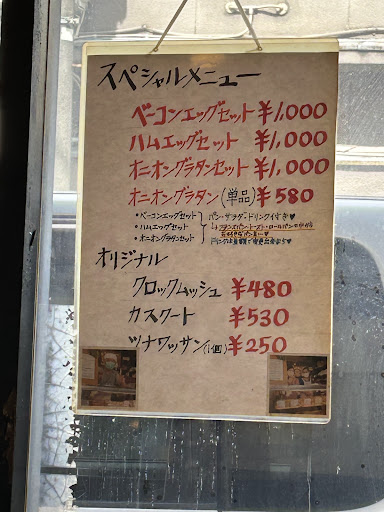 スペシャルメニュー
ベーコンエッグセット ¥1,000
ハムエッグセット ¥1,000
オニオングラタンセット ¥1,000
オニオングラタン(単品) ¥580
・ベーコンエッグセット
・ハムエッグセット
・オニオングラタンセット
パン・サラダ・ドリンク付き♥
↳フランスパン・トースト・ロールパンの中から
オリジナル
クロックムッシュ ¥480
カスクート ¥530
ツナワッサン(1個) ¥250